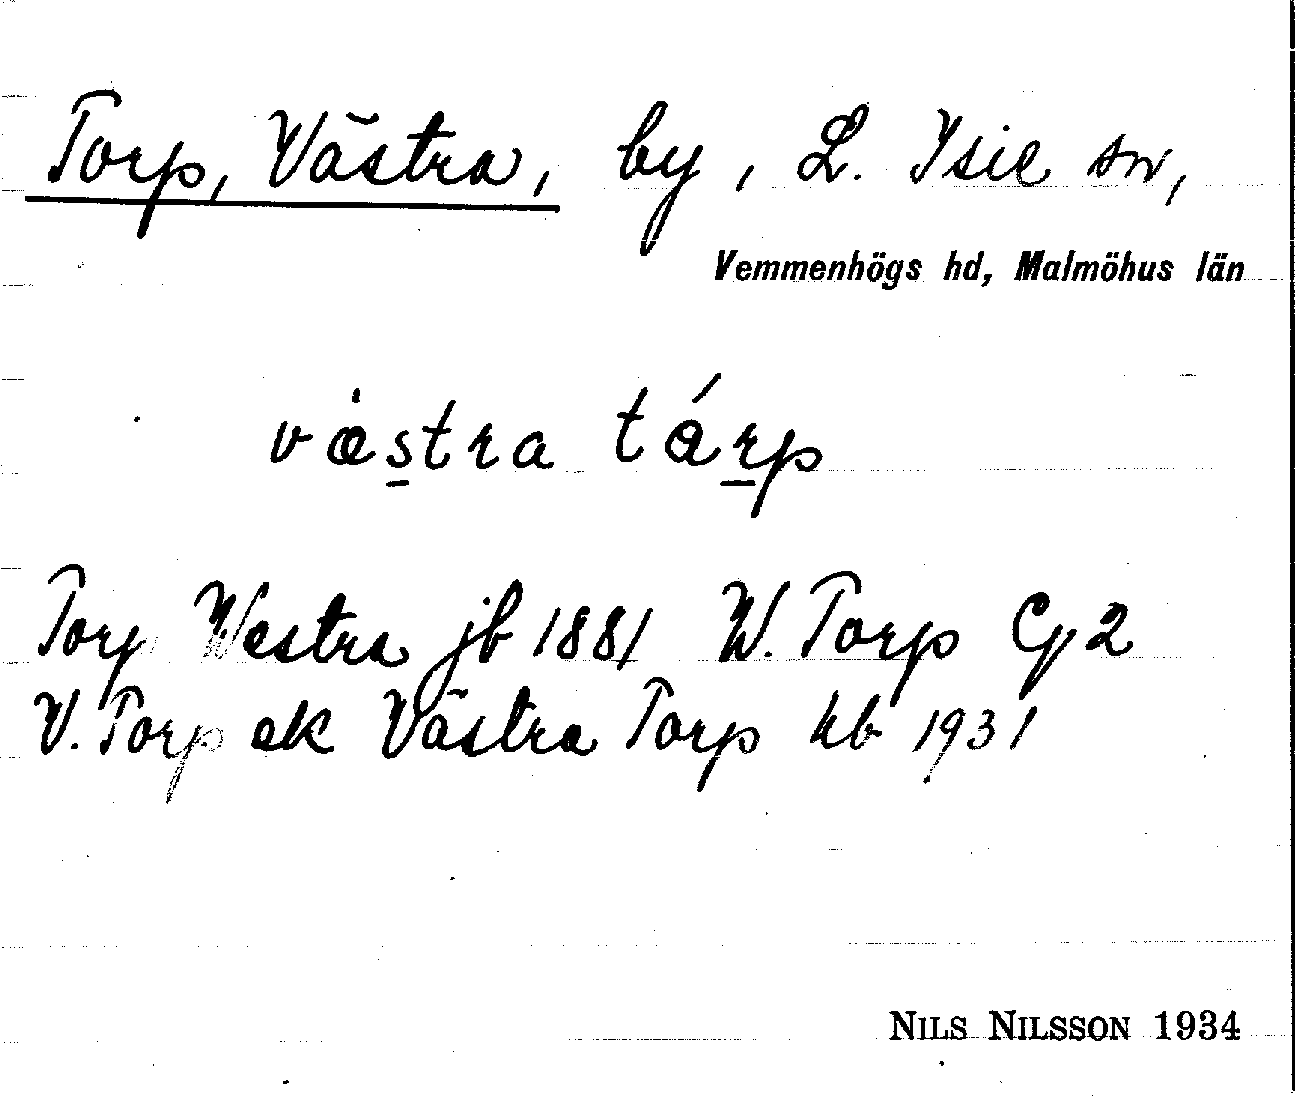 Torp, Västra, by, L. Isie sn,
Vemmenhögs hd, Malmöhus län
västra tárp
Torp Westra jb 1881 W. Torp Gg 2
V. Torp ek Västra Torp kb 1931
NILS NILSSON 1934